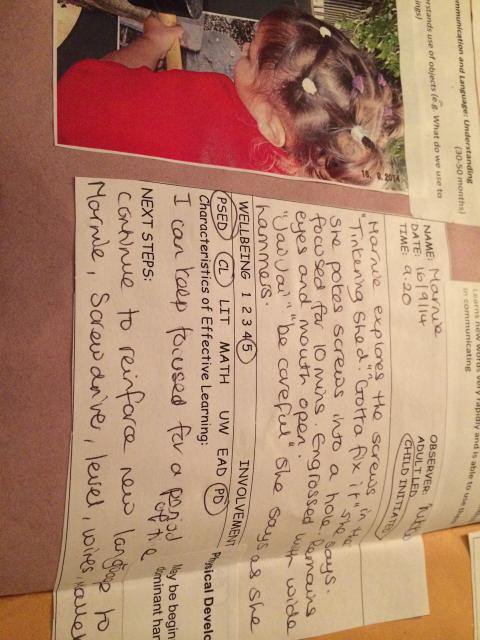 mmunication and Language: Understanding
(30-50 months)
rstands use of objects (e.g. What do we use to
ings)
Learns new words very rapidly and is able to use them
in communicating.
16. 9. 2014
NAME: Marnie
DATE: 16/9/14
TIME: 9.20
OBSERVER:
ADULT LED
CHILD INITIATED
"Marnie explores the screws in the
Tinkering Shed. "Gotta fix it" she says.
She pokes screws into a hole. Remains
focused for 10 mins. Engrossed with wide
eyes and mouth open.
"be careful" she says as she
hammers.
WELLBEING 1 2 3 4 5
INVOLVEMENT
PSED CL LIT MATH UW EAD PD
Characteristics of Effective Learning:
I can keep focused for a period
of time
NEXT STEPS:
Continue to reinforce new language to
Marnie, Screwdriver, level, wires,
Physical Develo
ay be begin
ominant han